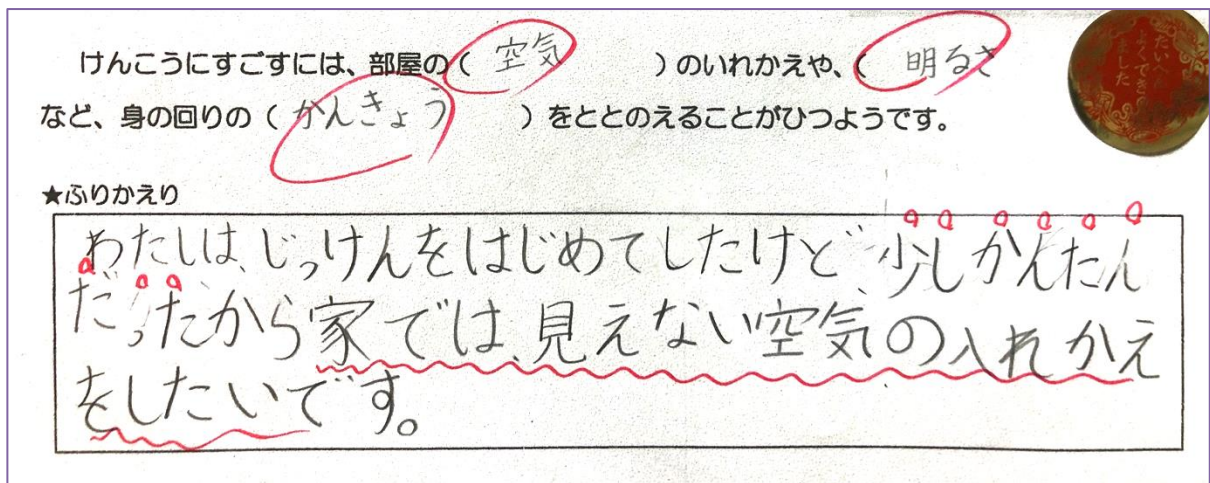 けんこうにすごすには、部屋の( 空気 )のいれかえや、( 明るさ
など、身の回りの( かんきょう )をととのえることがひつようです。
たいへん
よくでき
ました
★ふりかえり
わたしは、じっけんをはじめてしたけど、少しかんたん
だったから家では、見えない空気の入れかえ
をしたいです。